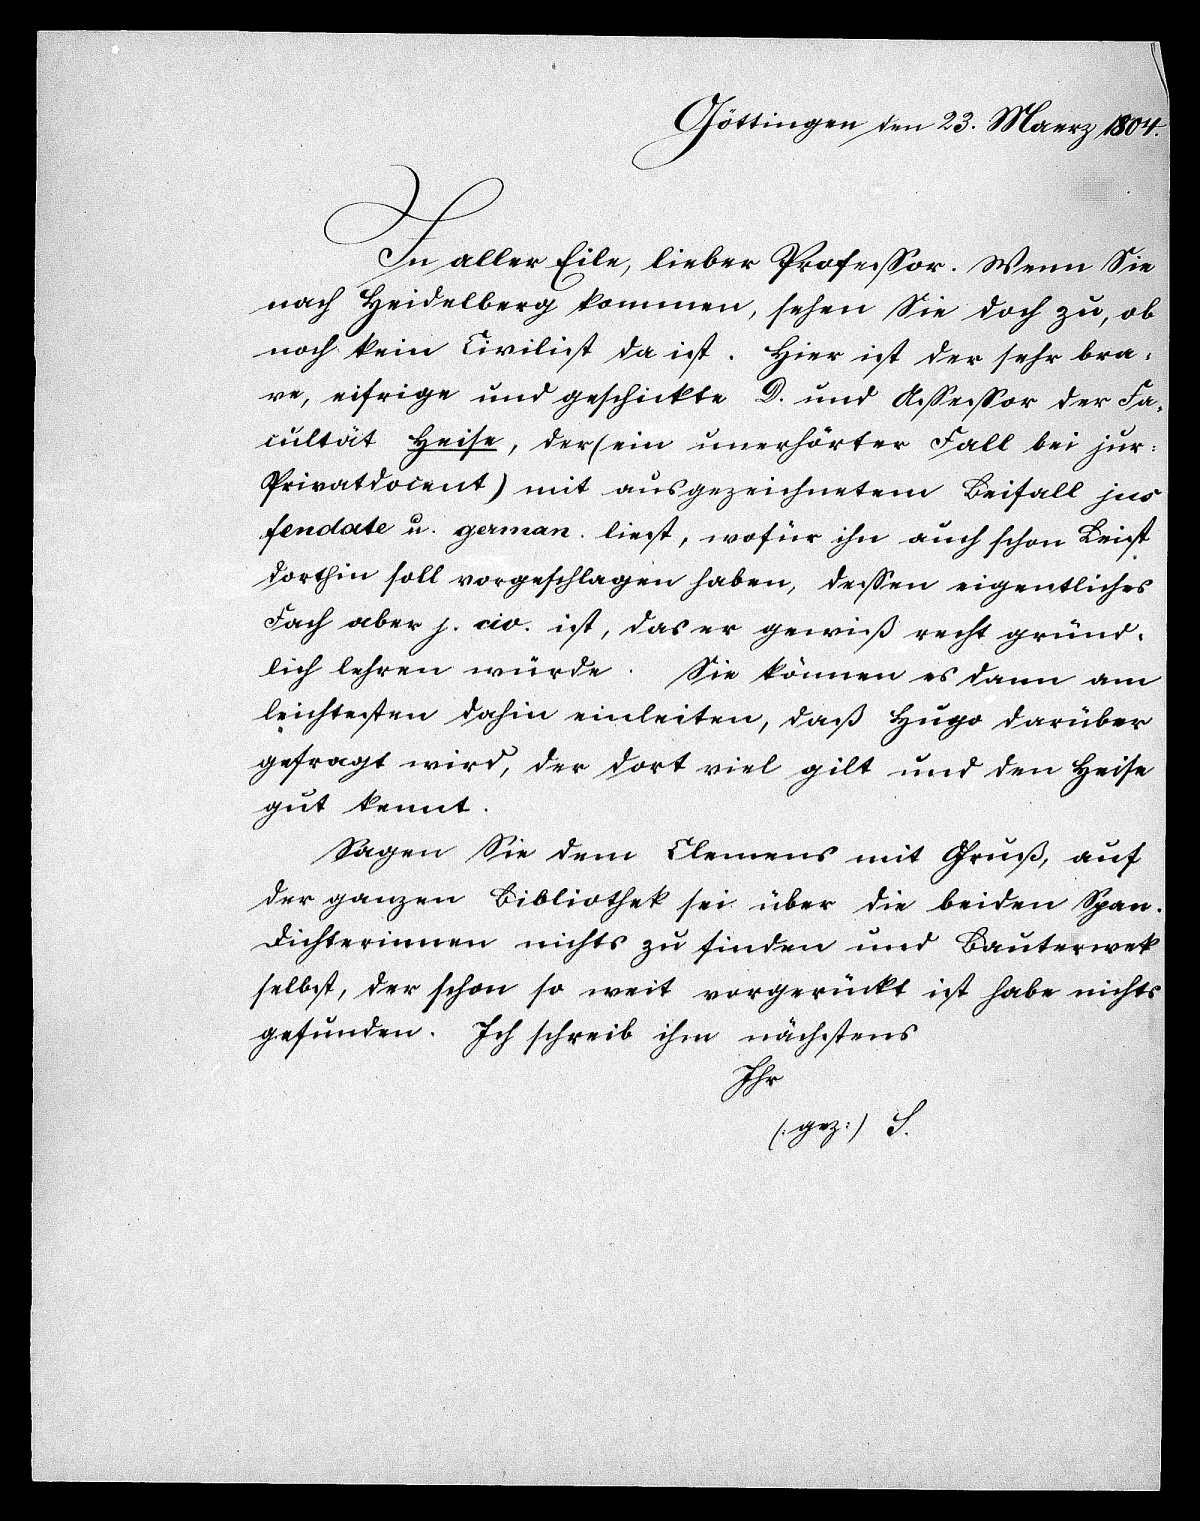 Göttingen den 23. Maerz 1804.
In aller Eile, lieber Professor. Wenn Sie
nach Heidelberg kommen, sehen Sie doch zu, ob
noch kein Civilist da ist. Hier ist der sehr bra-
ve, eifrige und geschickte D. und Assessor der Fa-
cultät Heise, der (ein unerhörter Fall bei jur:
Privatdocent) mit ausgezeichnetem Beifall jus
fendate u. german. liest, wofür ihn auch schon Leist
dorthin soll vorgeschlagen haben, dessen eigentliches
Fach aber j. civ. ist, das er gewiß recht gründ-
lich lehren würde. Sie können es dann am
leichtesten dahin einleiten, daß Hugo darüber
gefragt wird, der dort viel gilt und den Heise
gut kennt.
Sagen Sie dem Clemens mit Gruß, auf
der ganzen Bibliothek sei über die beiden Span.
Dichterinnen nichts zu finden und Bauterwek
selbst, der schon so weit vorgerückt ist habe nichts
gefunden. Ich schreib ihm nächstens
Ihr
(: gez:) S.